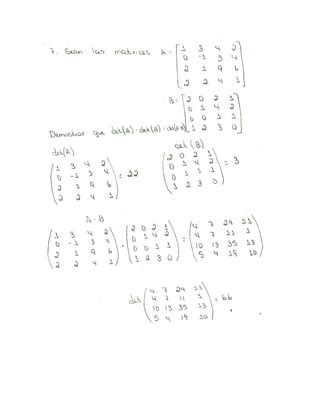 7. Sean las matrices A = [1 3 4 2
0 -1 3 4
2 1 9 6
2 2 4 1]
B = [2 0 2 1
0 1 4 2
0 0 1 1
1 2 3 0]
Demostrar que det(A) · det(B) = det(A·B)
det(A) det(B)
(1 3 4 2
0 -1 3 4
2 1 9 6
2 2 4 1) = 22
(2 0 2 1
0 1 4 2
0 1 1 1
1 2 3 0) = 3
A · B
(1 3 4 2
0 -1 3 4
2 1 9 6
2 2 4 1) · (2 0 2 1
0 1 4 2
0 0 1 1
1 2 3 0) = (4 7 24 11
4 7 11 1
10 13 35 13
5 4 19 10)
det (4 7 24 11
4 7 11 1
10 13 35 13
5 4 19 10) = 66